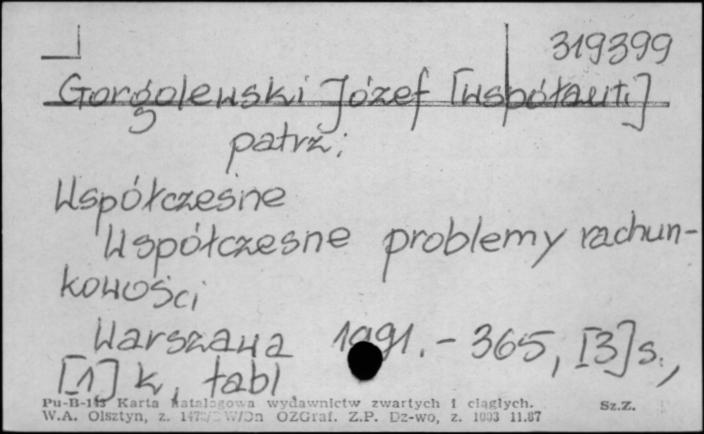 319399
Gorgolewski Józef [współaut.]
patrz:
Współczesne
Współczesne problemy rachun-
kowości
Warszawa 1991. - 365, [3] s.,
[1] k, tabl
Pu-B-143 Karta katalogowa wydawnictw zwartych i ciągłych. Sz.Z.
W.A. Olsztyn, z. OZGraf. Z.P. Dz-wo, z. 1003 11.87